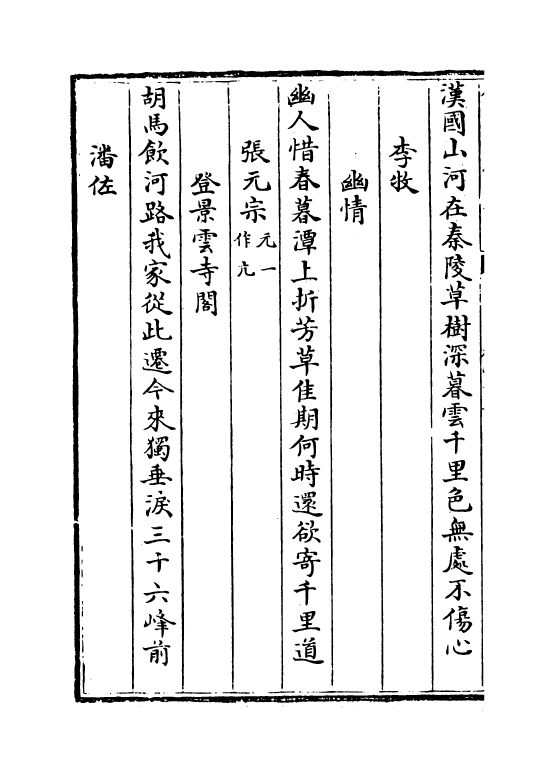 漢國山河在秦陵草樹深暮雲千里色無處不傷心
李牧
幽情
幽人惜春暮潭上折芳草佳期何時還欲寄千里道
張元宗元一作亢
登景雲寺閣
胡馬飲河路我家從此遷今來獨垂淚三十六峰前
潘佐